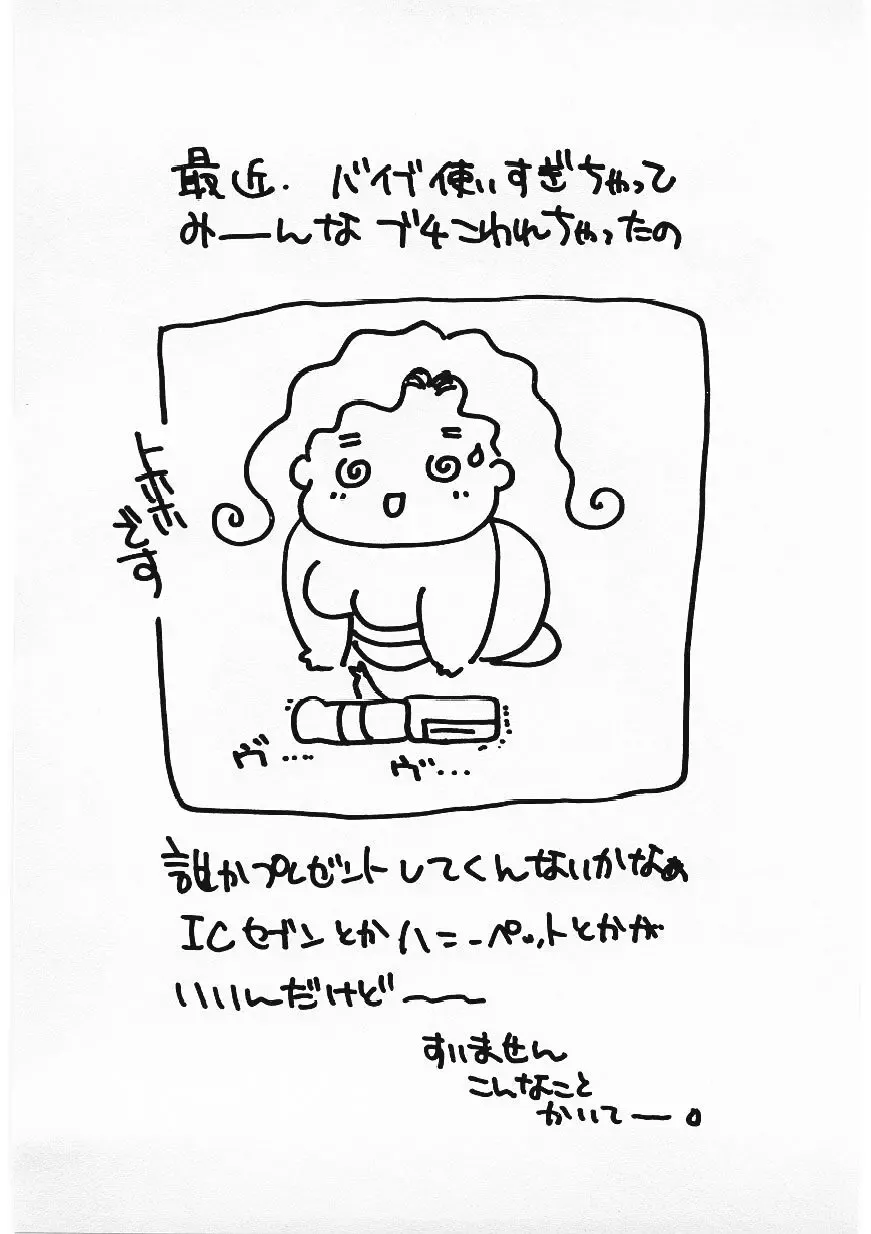 最近、バイブ使いすぎちゃって
み——んなブチこわれちゃったの
です
ヴ…
ヴ…
誰かプレゼントしてくんないかなぁ
ICセブンとかハニーペットとかが
いいんだけど〜〜
すいません
こんなこと
かいてー。